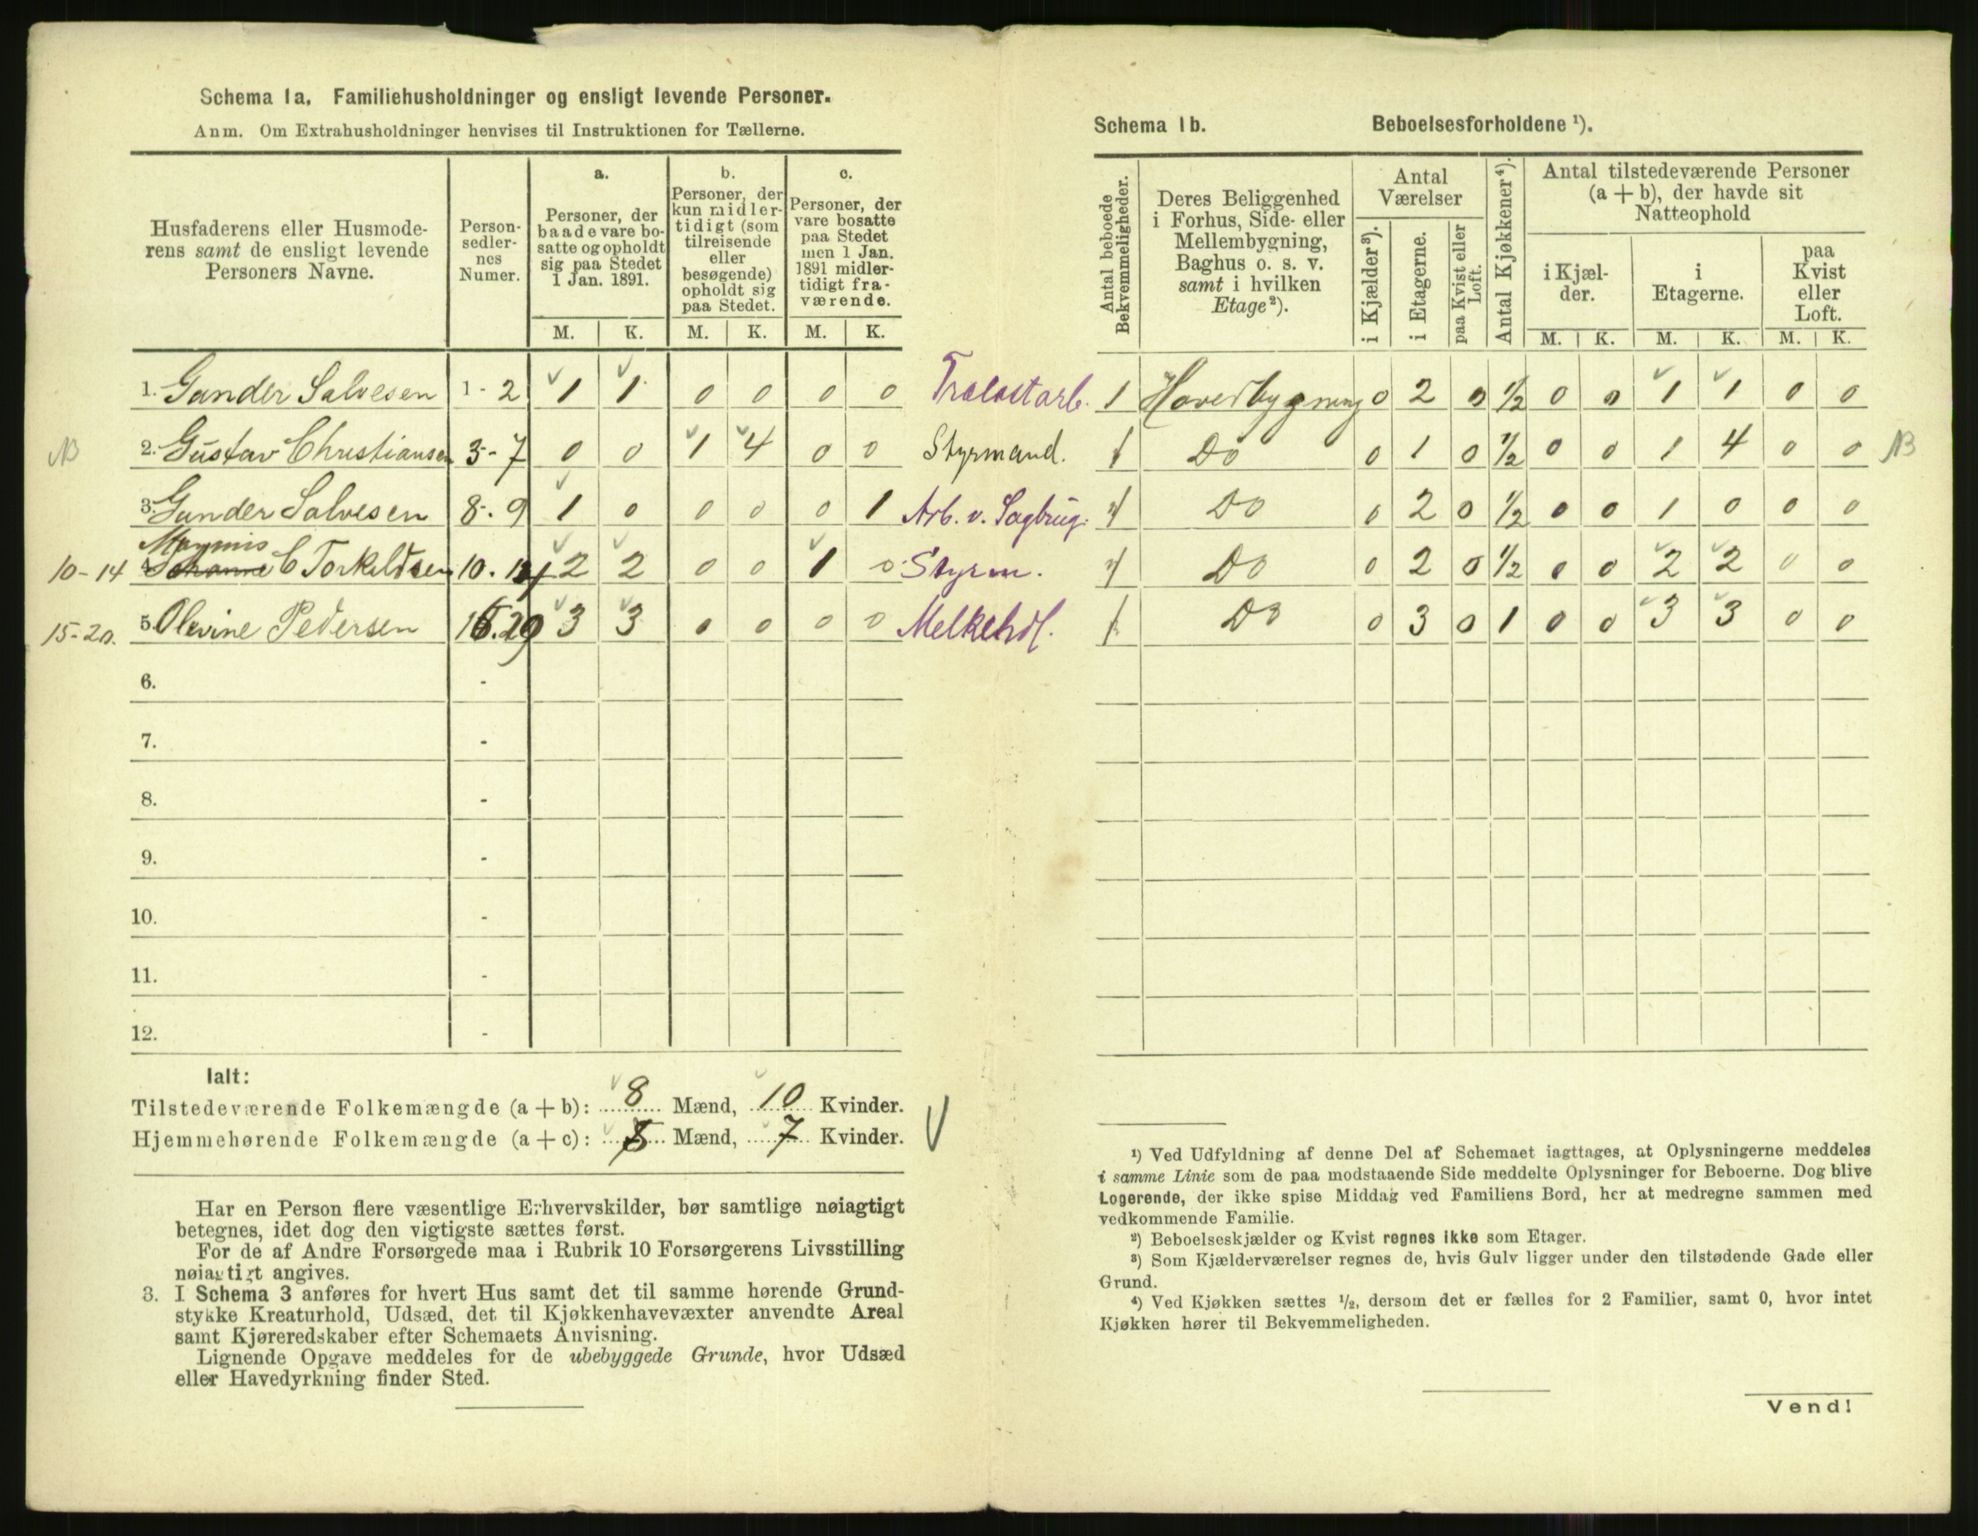 Schema 1a. Familiehusholdninger og ensligt levende Personer.
Anm. Om Extrahusholdninger henvises til Instruktionen for Tællerne.
Husfaderens eller Husmode-
rens samt de ensligt levende
Personers Navne.
Person-
sedler-
nes
Numer.
a.
Personer, der
baade vare bo-
satte og opholdt
sig paa Stedet
1 Jan. 1891.
b.
Personer, der
kun midler-
tidigt (som
tilreisende
eller
besøgende)
opholdt sig
paa Stedet.
c.
Personer, der
vare bosatte
paa Stedet
men 1 Jan.
1891 midler-
tidigt fra-
værende.
M. K. M. K. M. K.
1. Gunder Salvesen 1 - 2 1 1 0 0 0 0 Trælastarb.
NB 2. Gustav Christiansen 3 - 7 0 0 1 4 0 0 Styrmand.
3. Gunder Salvesen 8 - 9 1 0 0 0 0 1 Arb. v. Sagbrug.
10-14 4. C Torkildsen 10. 14 2 2 0 0 1 0 Styrm.
15-20. 5. Olevine Pedersen 15. 20 3 3 0 0 0 0 Melkehdl.
6. -
7. -
8. -
9. -
10. -
11. -
12. -
Ialt:
Tilstedeværende Folkemængde (a + b): 8 Mænd, 10 Kvinder.
Hjemmehørende Folkemængde (a + c): Mænd, 7 Kvinder.
Har en Person flere væsentlige Erhvervskilder, bør samtlige nøiagtigt
betegnes, idet dog den vigtigste sættes først.
For de af Andre Forsørgede maa i Rubrik 10 Forsørgerens Livsstilling
nøiagtigt angives.
3. I Schema 3 anføres for hvert Hus samt det til samme hørende Grund-
stykke Kreaturhold, Udsæd, det til Kjøkkenhavevæxter anvendte Areal
samt Kjøreredskaber efter Schemaets Anvisning.
Lignende Opgave meddeles for de ubebyggede Grunde, hvor Udsæd
eller Havedyrkning finder Sted.
Schema 1b. Beboelsesforholdene ¹).
Antal beboede
Bekvemmeligheder.
Deres Beliggenhed
i Forhus, Side- eller
Mellembygning,
Baghus o. s. v.
samt i hvilken
Etage²).
Antal
Værelser
i Kjælder³).
i Etagerne.
paa Kvist eller
Loft.
Antal Kjøkkener⁴).
Antal tilstedeværende Personer
(a + b), der havde sit
Natteophold
i Kjæl-
der.
i
Etagerne.
paa
Kvist
eller
Loft.
M. K. M. K. M. K.
1 Hovedbygning 0 2 0 ½ 0 0 1 1 0 0
1 Do 0 1 0 ½ 0 0 1 4 0 0 NB
1 Do 0 2 0 ½ 0 0 1 0 0 0
1 Do 0 2 0 ½ 0 0 2 2 0 0
1 Do 0 3 0 1 0 0 3 3 0 0
¹) Ved Udfyldning af denne Del af Schemaet iagttages, at Oplysningerne meddeles
i samme Linie som de paa modstaaende Side meddelte Oplysninger for Beboerne. Dog blive
Logerende, der ikke spise Middag ved Familiens Bord, her at medregne sammen med
vedkommende Familie.
²) Beboelseskjælder og Kvist regnes ikke som Etager.
³) Som Kjælderværelser regnes de, hvis Gulv ligger under den tilstødende Gade eller
Grund.
⁴) Ved Kjøkken sættes ½, dersom det er fælles for 2 Familier, samt 0, hvor intet
Kjøkken hører til Bekvemmeligheden.
Vend!